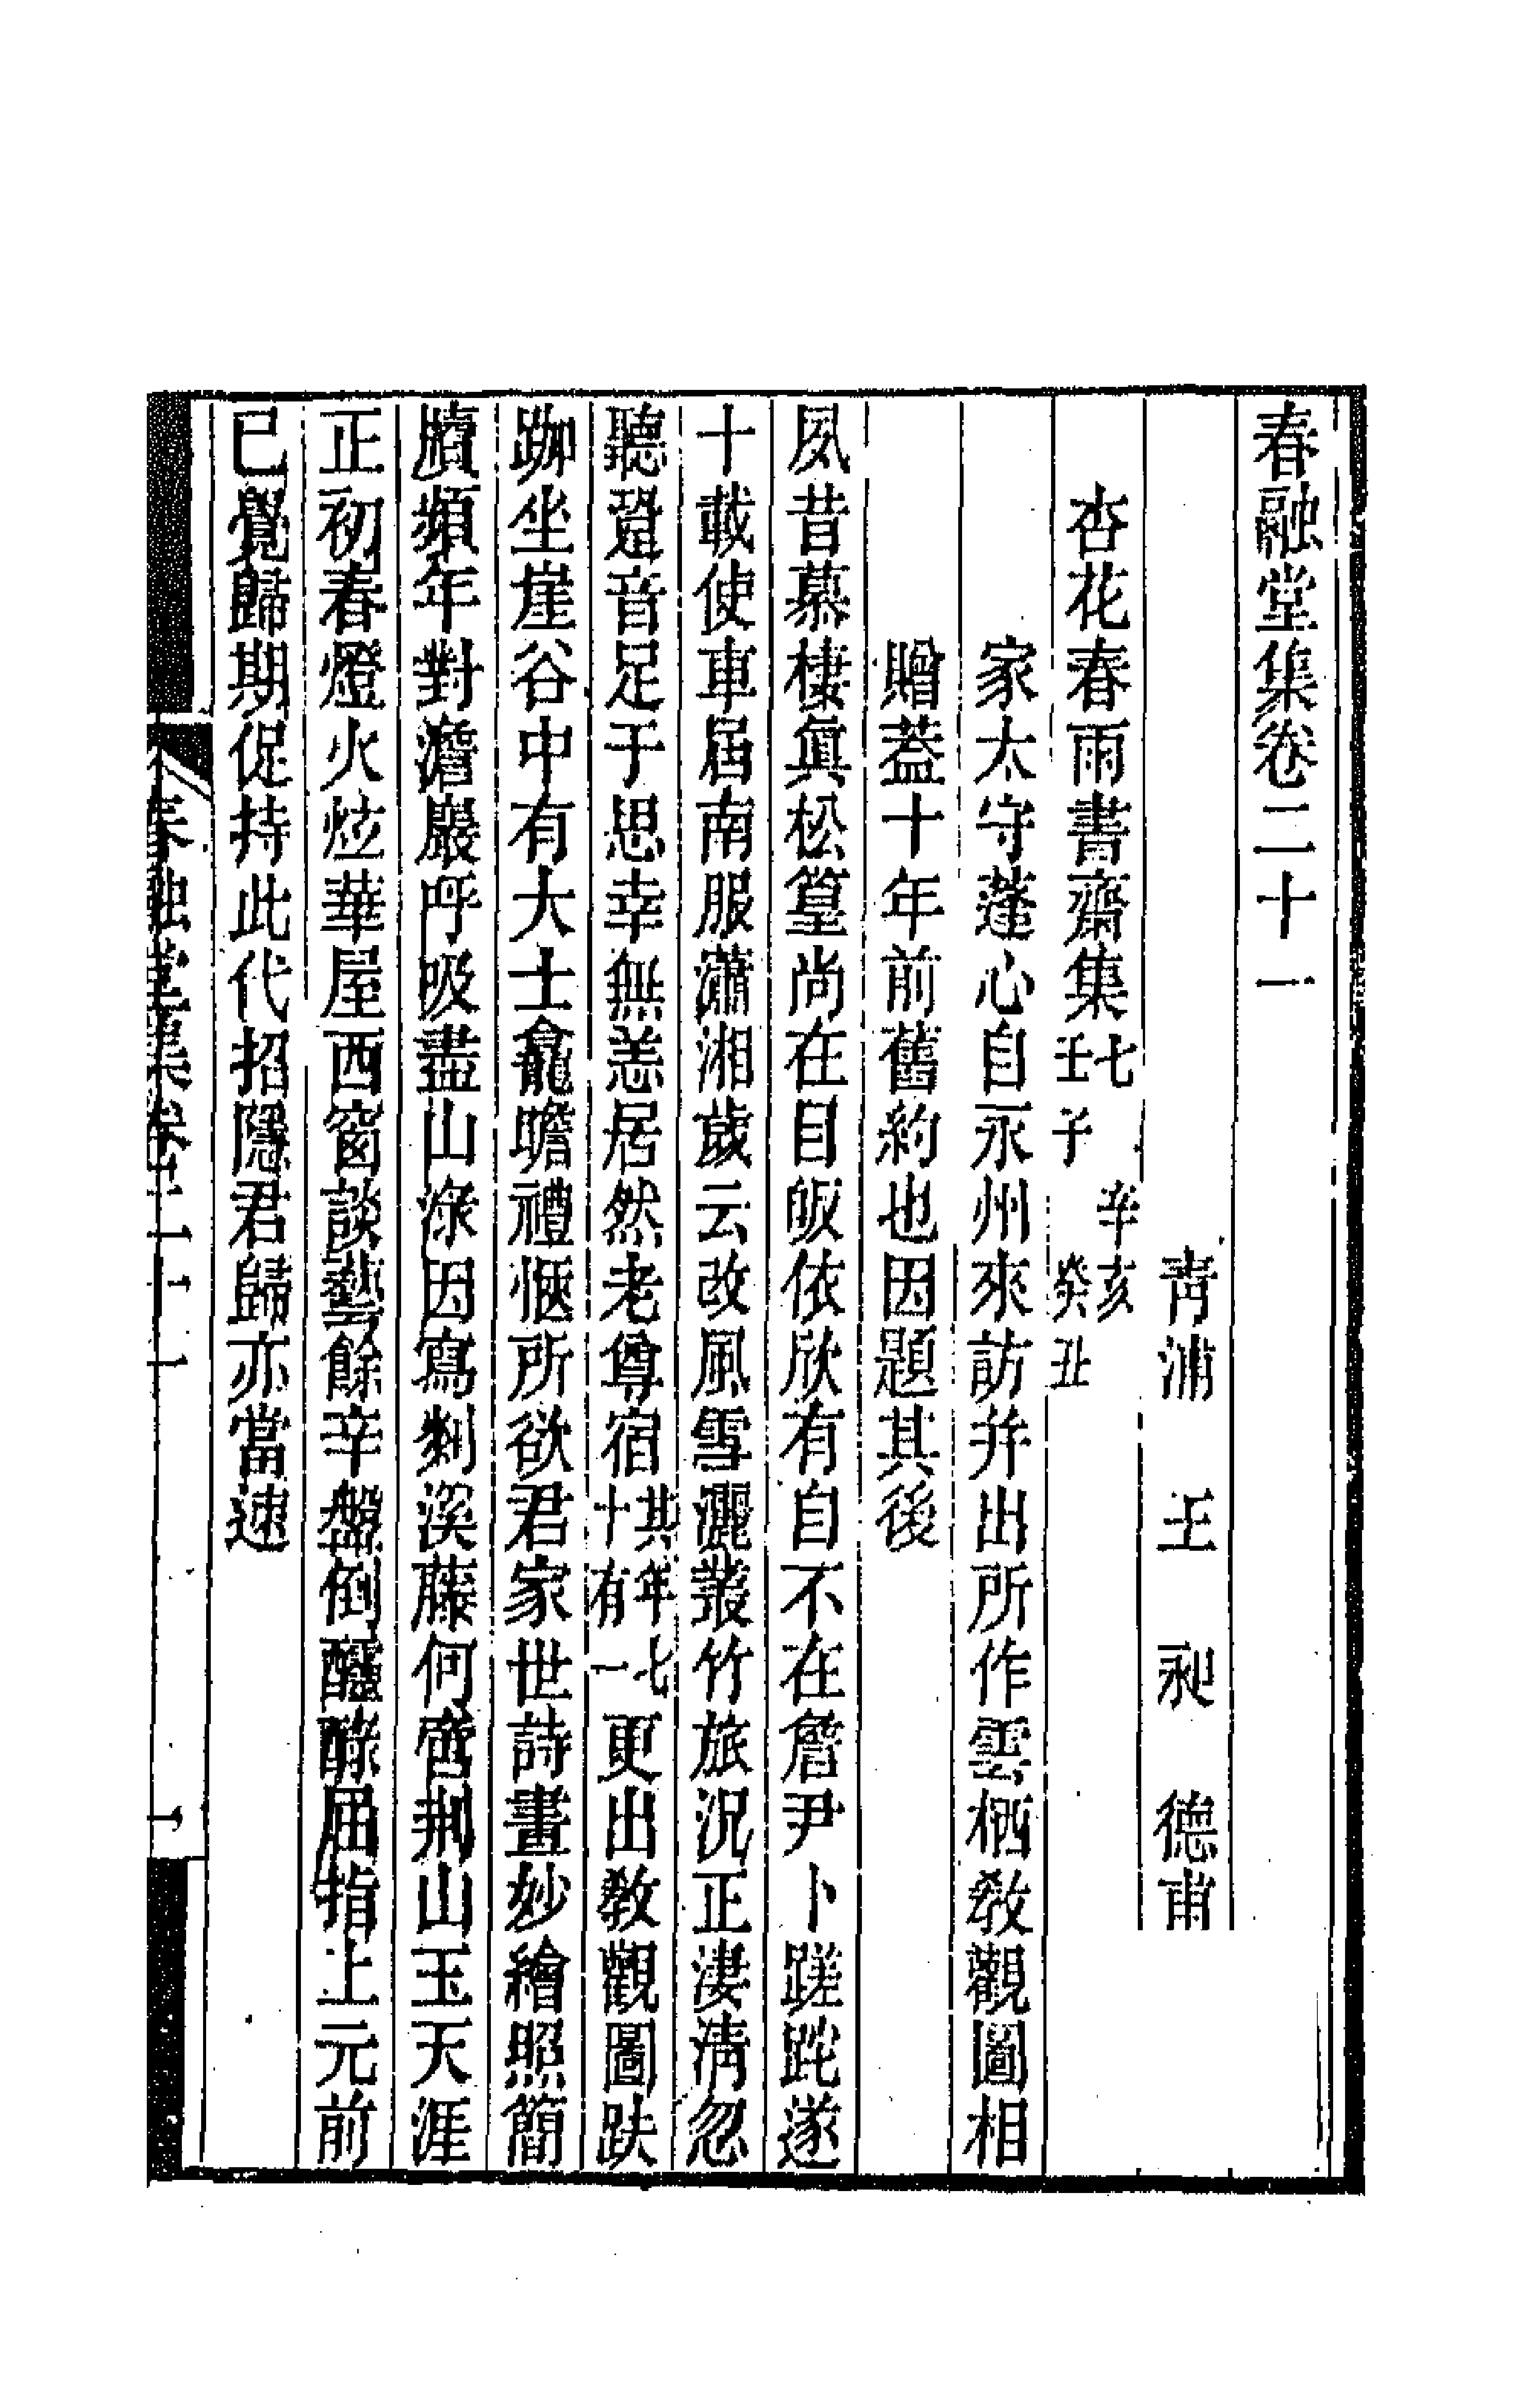 春融堂集卷二十一
青浦 王 昶 德甫
杏花春雨書齋集七 辛亥 壬子 癸丑
家太守蓬心自永州來訪并出所作雲栖敎觀圖相
贈蓋十年前舊約也因題其後
夙昔慕棲眞松篁尚在目皈依欣有自不在詹尹卜蹉跎遂
十載使車届南服瀟湘歲云改風雪灑叢竹旅況正淒淸忽
聽跫音足于思幸無恙居然老尊宿其年七十有一更出敎觀圖趺
跏坐崖谷中有大士龕瞻禮愜所欲君家世詩畫妙繪照簡
牘頻年對澹巖呼吸盡山淥因寫剡溪藤何啻荆山玉天涯
正初春燈火炫華屋西窗談藝餘辛盤倒醽醁屈指上元前
已覺歸期促持此代招隱君歸亦當速
春融堂集卷二十一 一